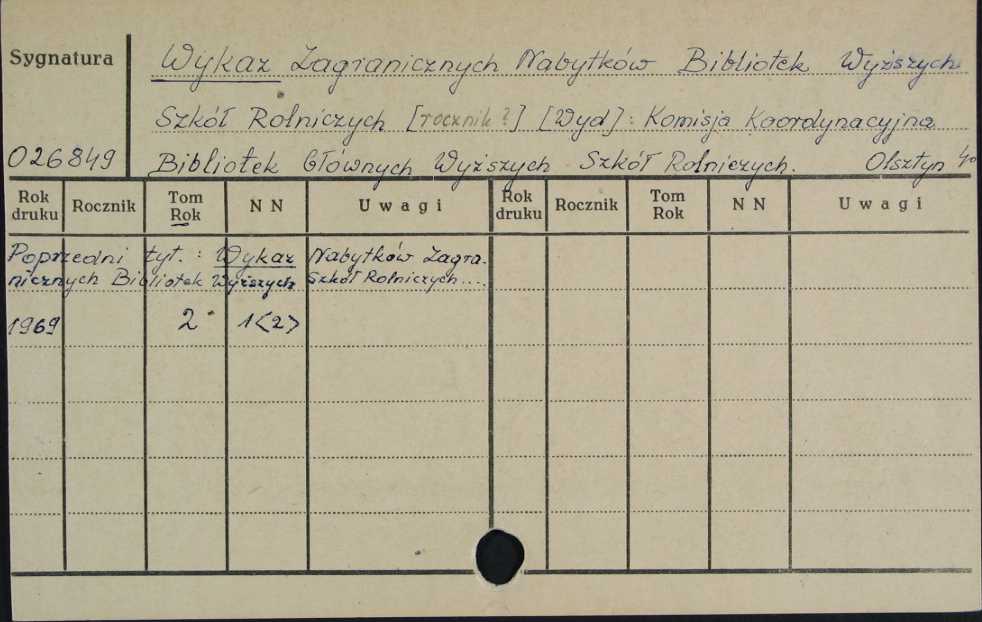 Sygnatura
Wykaz Zagranicznych Nabytków Bibliotek Wyższych
Szkół Rolniczych [rocznik?] [Wyd]: Komisja Koordynacyjna
026849 Bibliotek Głównych Wyższych Szkół Rolniczych. Olsztyn 4o
Rok druku Rocznik Tom Rok N N Uwagi Rok druku Rocznik Tom Rok N N Uwagi
Poprzedni tyt.: Wykaz Nabytków Zagra-
nicznych Bibliotek Wyższych Szkół Rolniczych...
1969 2 1<2>